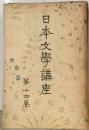 日本文學講座
第十四卷